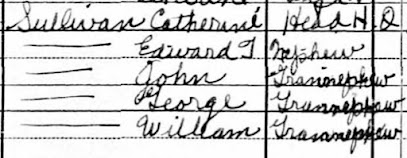 Sullivan Catherine Head H. O
— Edward T Nephew
— John Grannephew
— George Grannephew
— William Grannephew